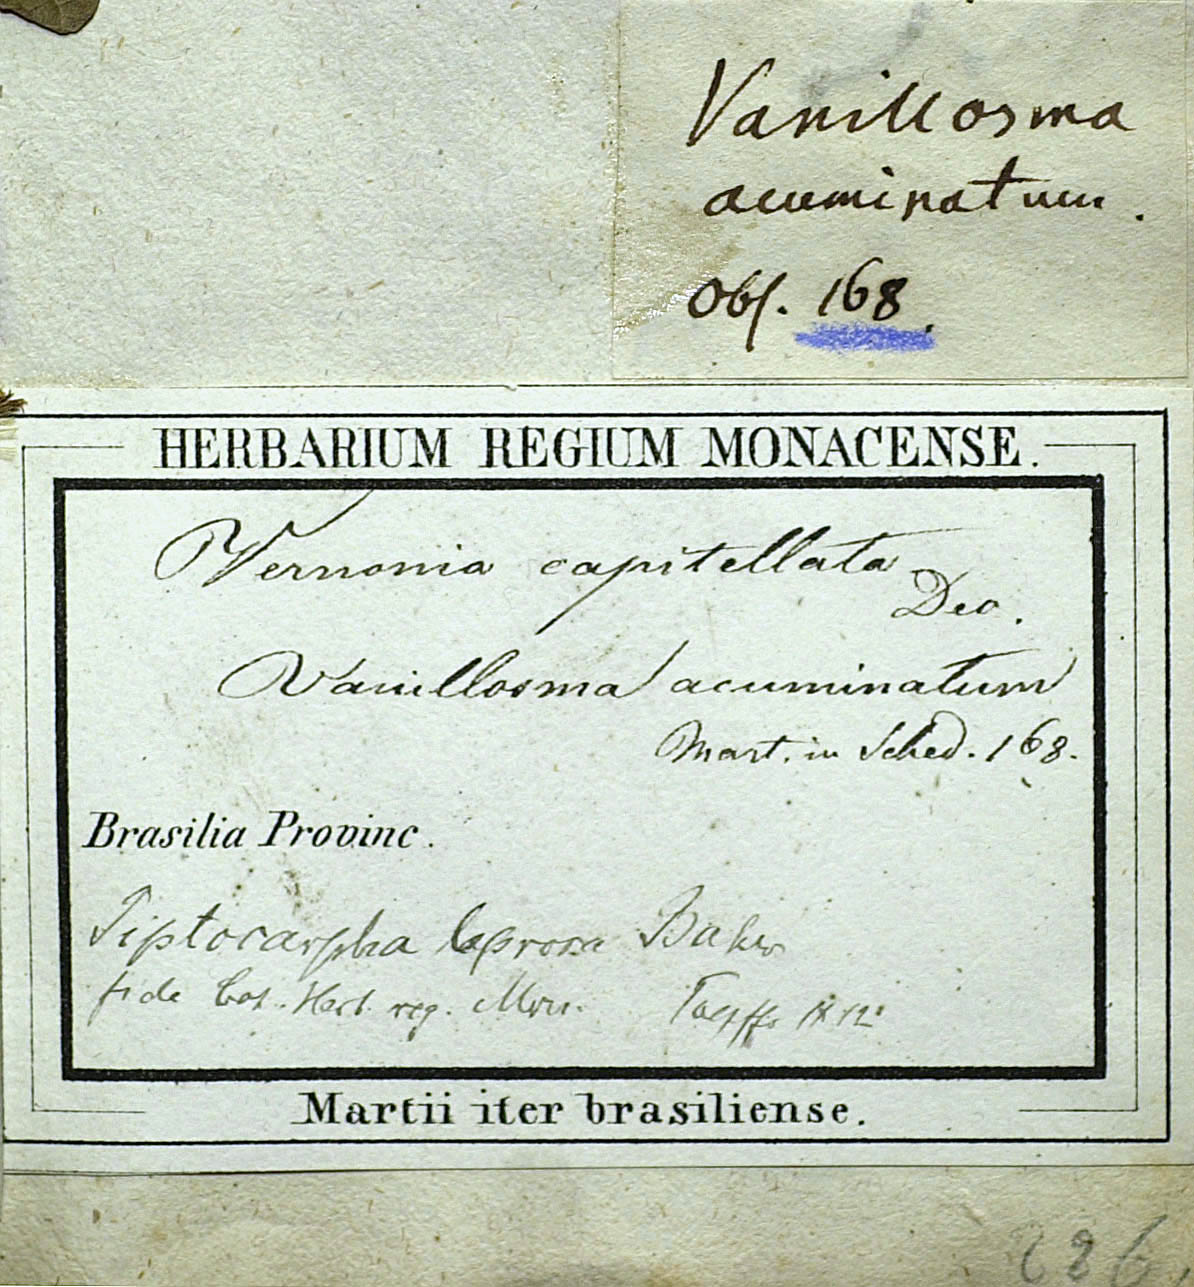 Vanillosma
acuminatum.
Obs. 168.
HERBARIUM REGIUM MONACENSE.
Vernonia capitellata
Dec.
Vanillosma acuminatum
Mart. in Sched. 168.
Brasilia Provinc.
Piptocarpha leprosa Baker
fide Cat. Herb. reg. Mon.
Martii iter brasiliense.